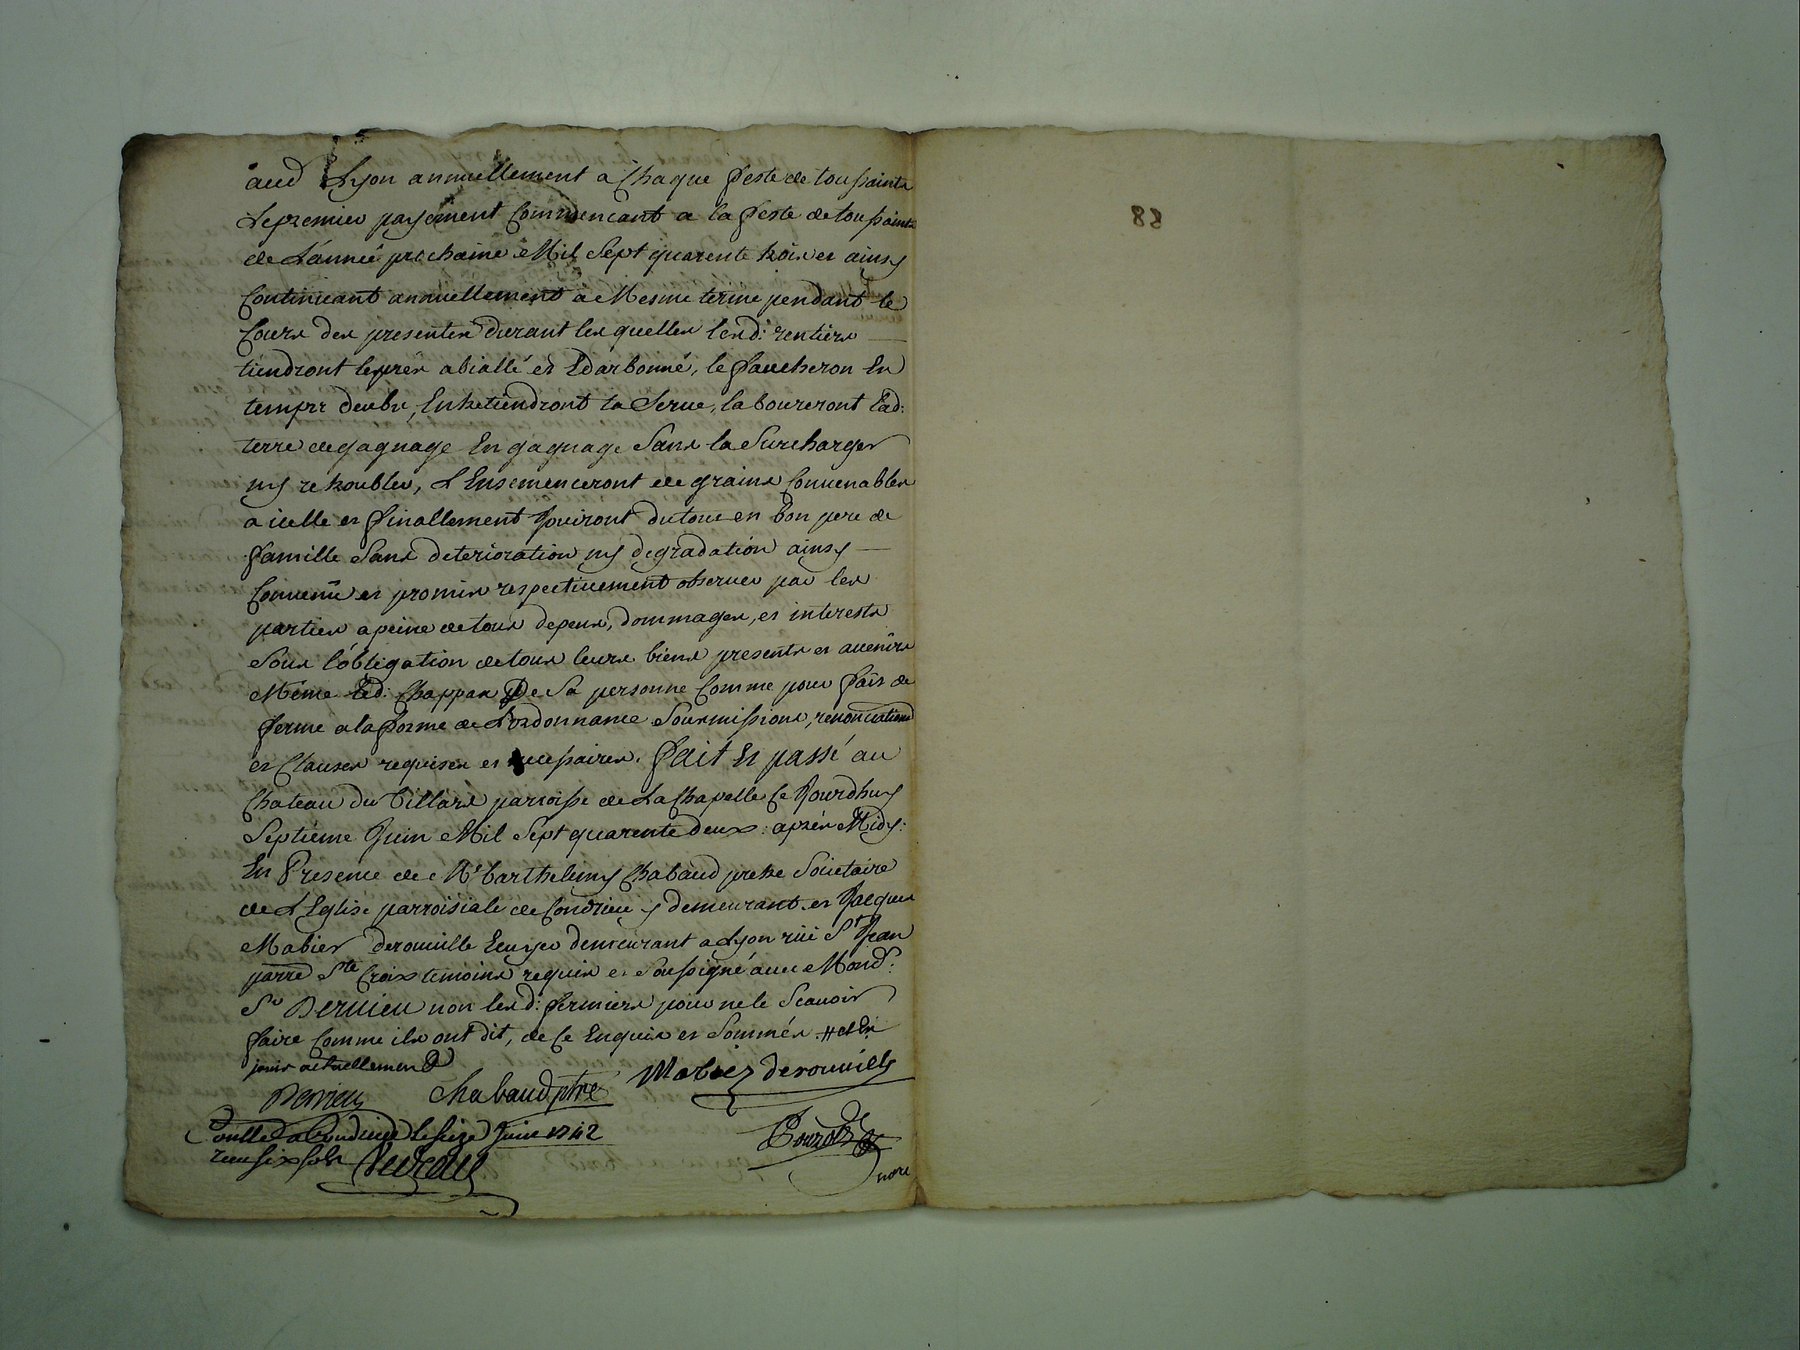 aud Lyon annuellement a Chaque feste de toussaints
Le premier payement Commencant a la feste de toussaints
de L'année prochaine Mil Sept quarente trois et ainsy
Continuant annuellement a Mesme terme pendant le
Cours des presentes durant les quelles lesd: rentiers
tiendront les prés abiallé et Edarbonné, le faucheron En
temps deubt, Entretiendront la Serve, laboureront Lad:
terre de gagnage En gagnage Sans la Surcharger
ny retroubler, L'Ensemenceront de grains Convenables
a icelle et finallement Jouiront du tout en bon pere de
famille Sans deterioration ny degradation ainsy
Convenû et promis respectivement observer par les
parties a peine de tous depens, dommages, et interests
Sous L'obligation de tous leurs biens presents et avenirs
Même Led: Chappas De Sa personne Comme pour fait de
ferme a la forme de L'ordonnance Soumissions, renonciations
et Clauses requises et necessaires. fait Et passé au
Chateau du Villars parroisse de La Chapelle Ce Jourdhuy
Septiéme Juin Mil Sept quarente deux: aprés Midy:
En Presence de Mr barthelemy Chabaud pretre Societaire
de L'Eglise parroisiale de Condrieu y demeurant et Jacques
Mabiez derouville Ecuyer demeurant a Lyon rüe St Jean
parre Ste Croix temoins requis et Soussigné avec Mond:
Sr Dervieu non lesd: fermiers pour ne le Scavoir
faire Comme ils ont dit, de Ce Enquis et Sommés #
jouir actuellement
Dervieu Chabaud ptre Mabiez derouville
Conllé a Condrieu le seize Juin 1742
reçu six sols
nore
88